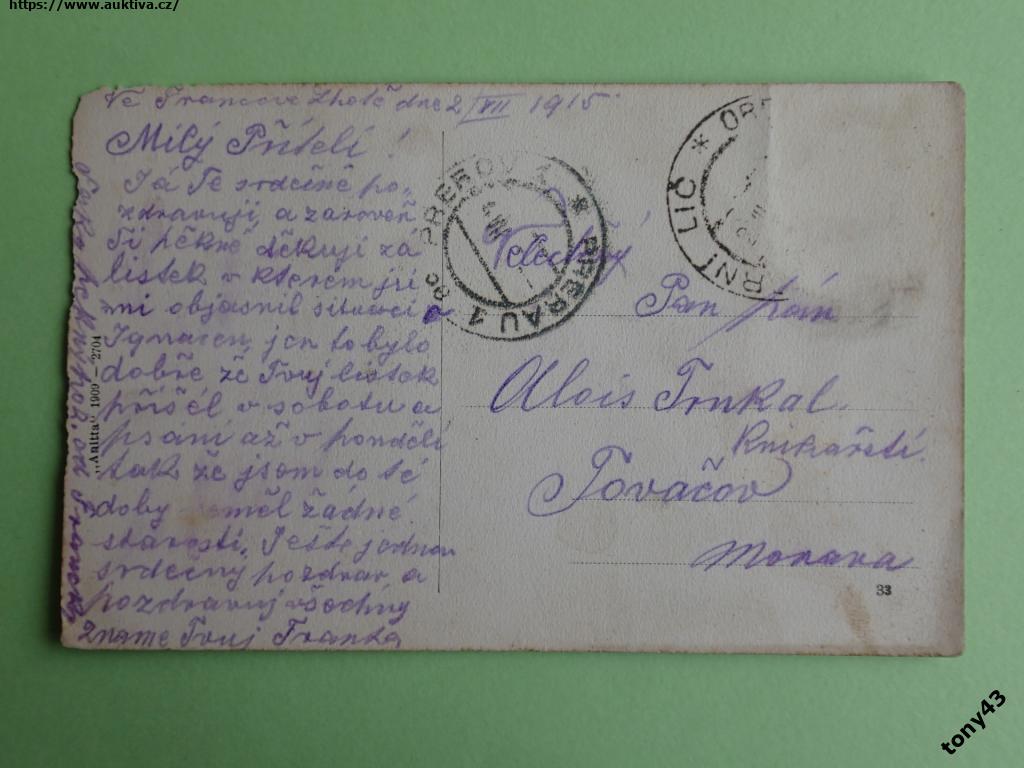 https://www.auktiva.cz/
Ve Francově Lhotě dne 2/VII 1915
Milý Příteli!
Já Tě srdečně po-
zdravuji, a zaroveň
Ti pěkně děkuji zá
listek v kterém jsi
mi objasnil situaci
Ignacem, jen to bylo
dobře že Tvuj listek
přišél v sobotu a
psáni až v pondělí
tak že jsem do té
doby neměl žádné
starosti. Ješte jednou
srdečny pozdrav a
pozdravuj všechny
zname Tvuj Franka
„Anitta" 1909 — 2704
PŘEROV 1 * PRERAU 1 * 8c
Velectěný
Pan pán
Alois Trnkal
Knihařstí
Tovačov
Morava
RNÍ LIČ * OBE
33
tony43